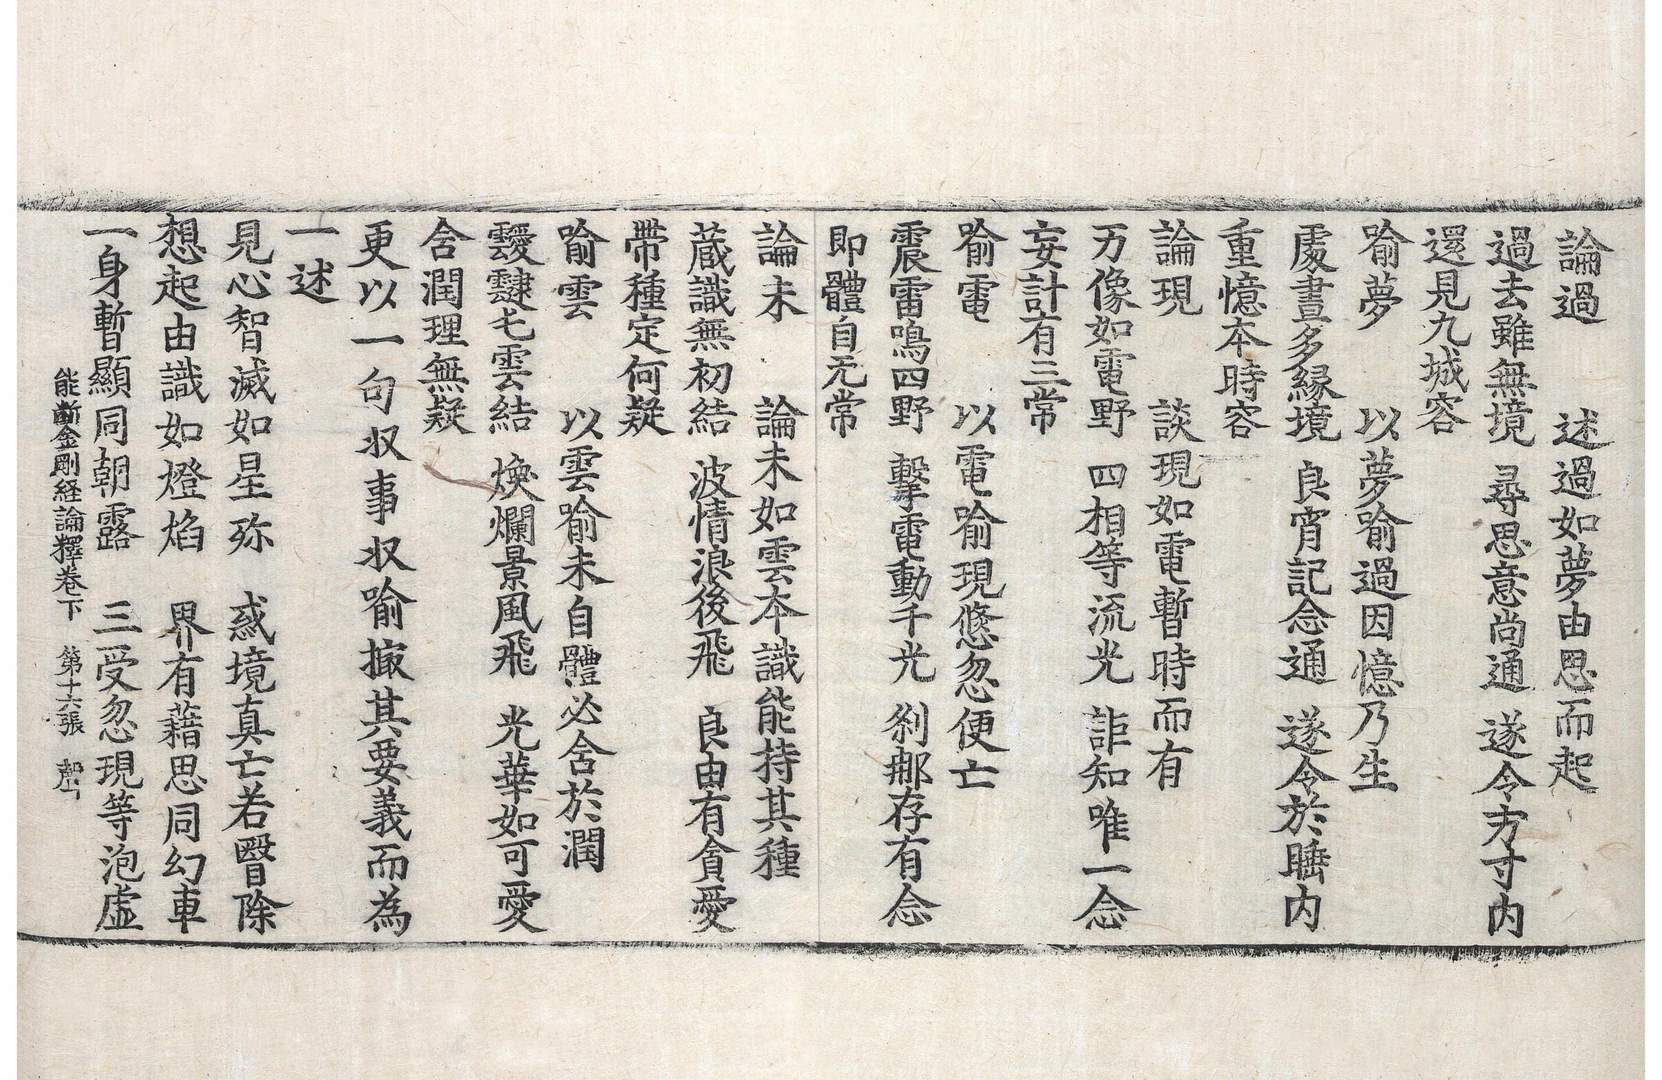 論過　述過如夢由思而起
過去雖無境　尋思意尚通　遂令方寸内
還見九城容
喻夢　以夢喻過因憶乃生
處晝多縁境　良宵記念通　遂令於睡内
重憶本時容
論現　談現如電暫時而有
万像如電野　四相等流光　詎知唯一念
妄計有三常
喻電　以電喻現倐忽便亡
震雷鳴四野　擊電動千光　刹那存有念
即體自无常
論未　論未如雲本識能持其種
蔵識無初結　波情浪後飛　良由有貪愛
帶種定何疑
喻雲　以雲喻未自體必含於潤
靉靆七雲結　煥爛景風飛　光華如可愛
含潤理無疑
更以一句収事収喻撮其要義而為
一述
見心智滅如星弥　惑境真亡若瞖除
想起由識如燈焰　界有藉思同幻車
一身暫顯同朝露　三受忽現等泡虛
能斷金剛経論釋卷下　第十六張